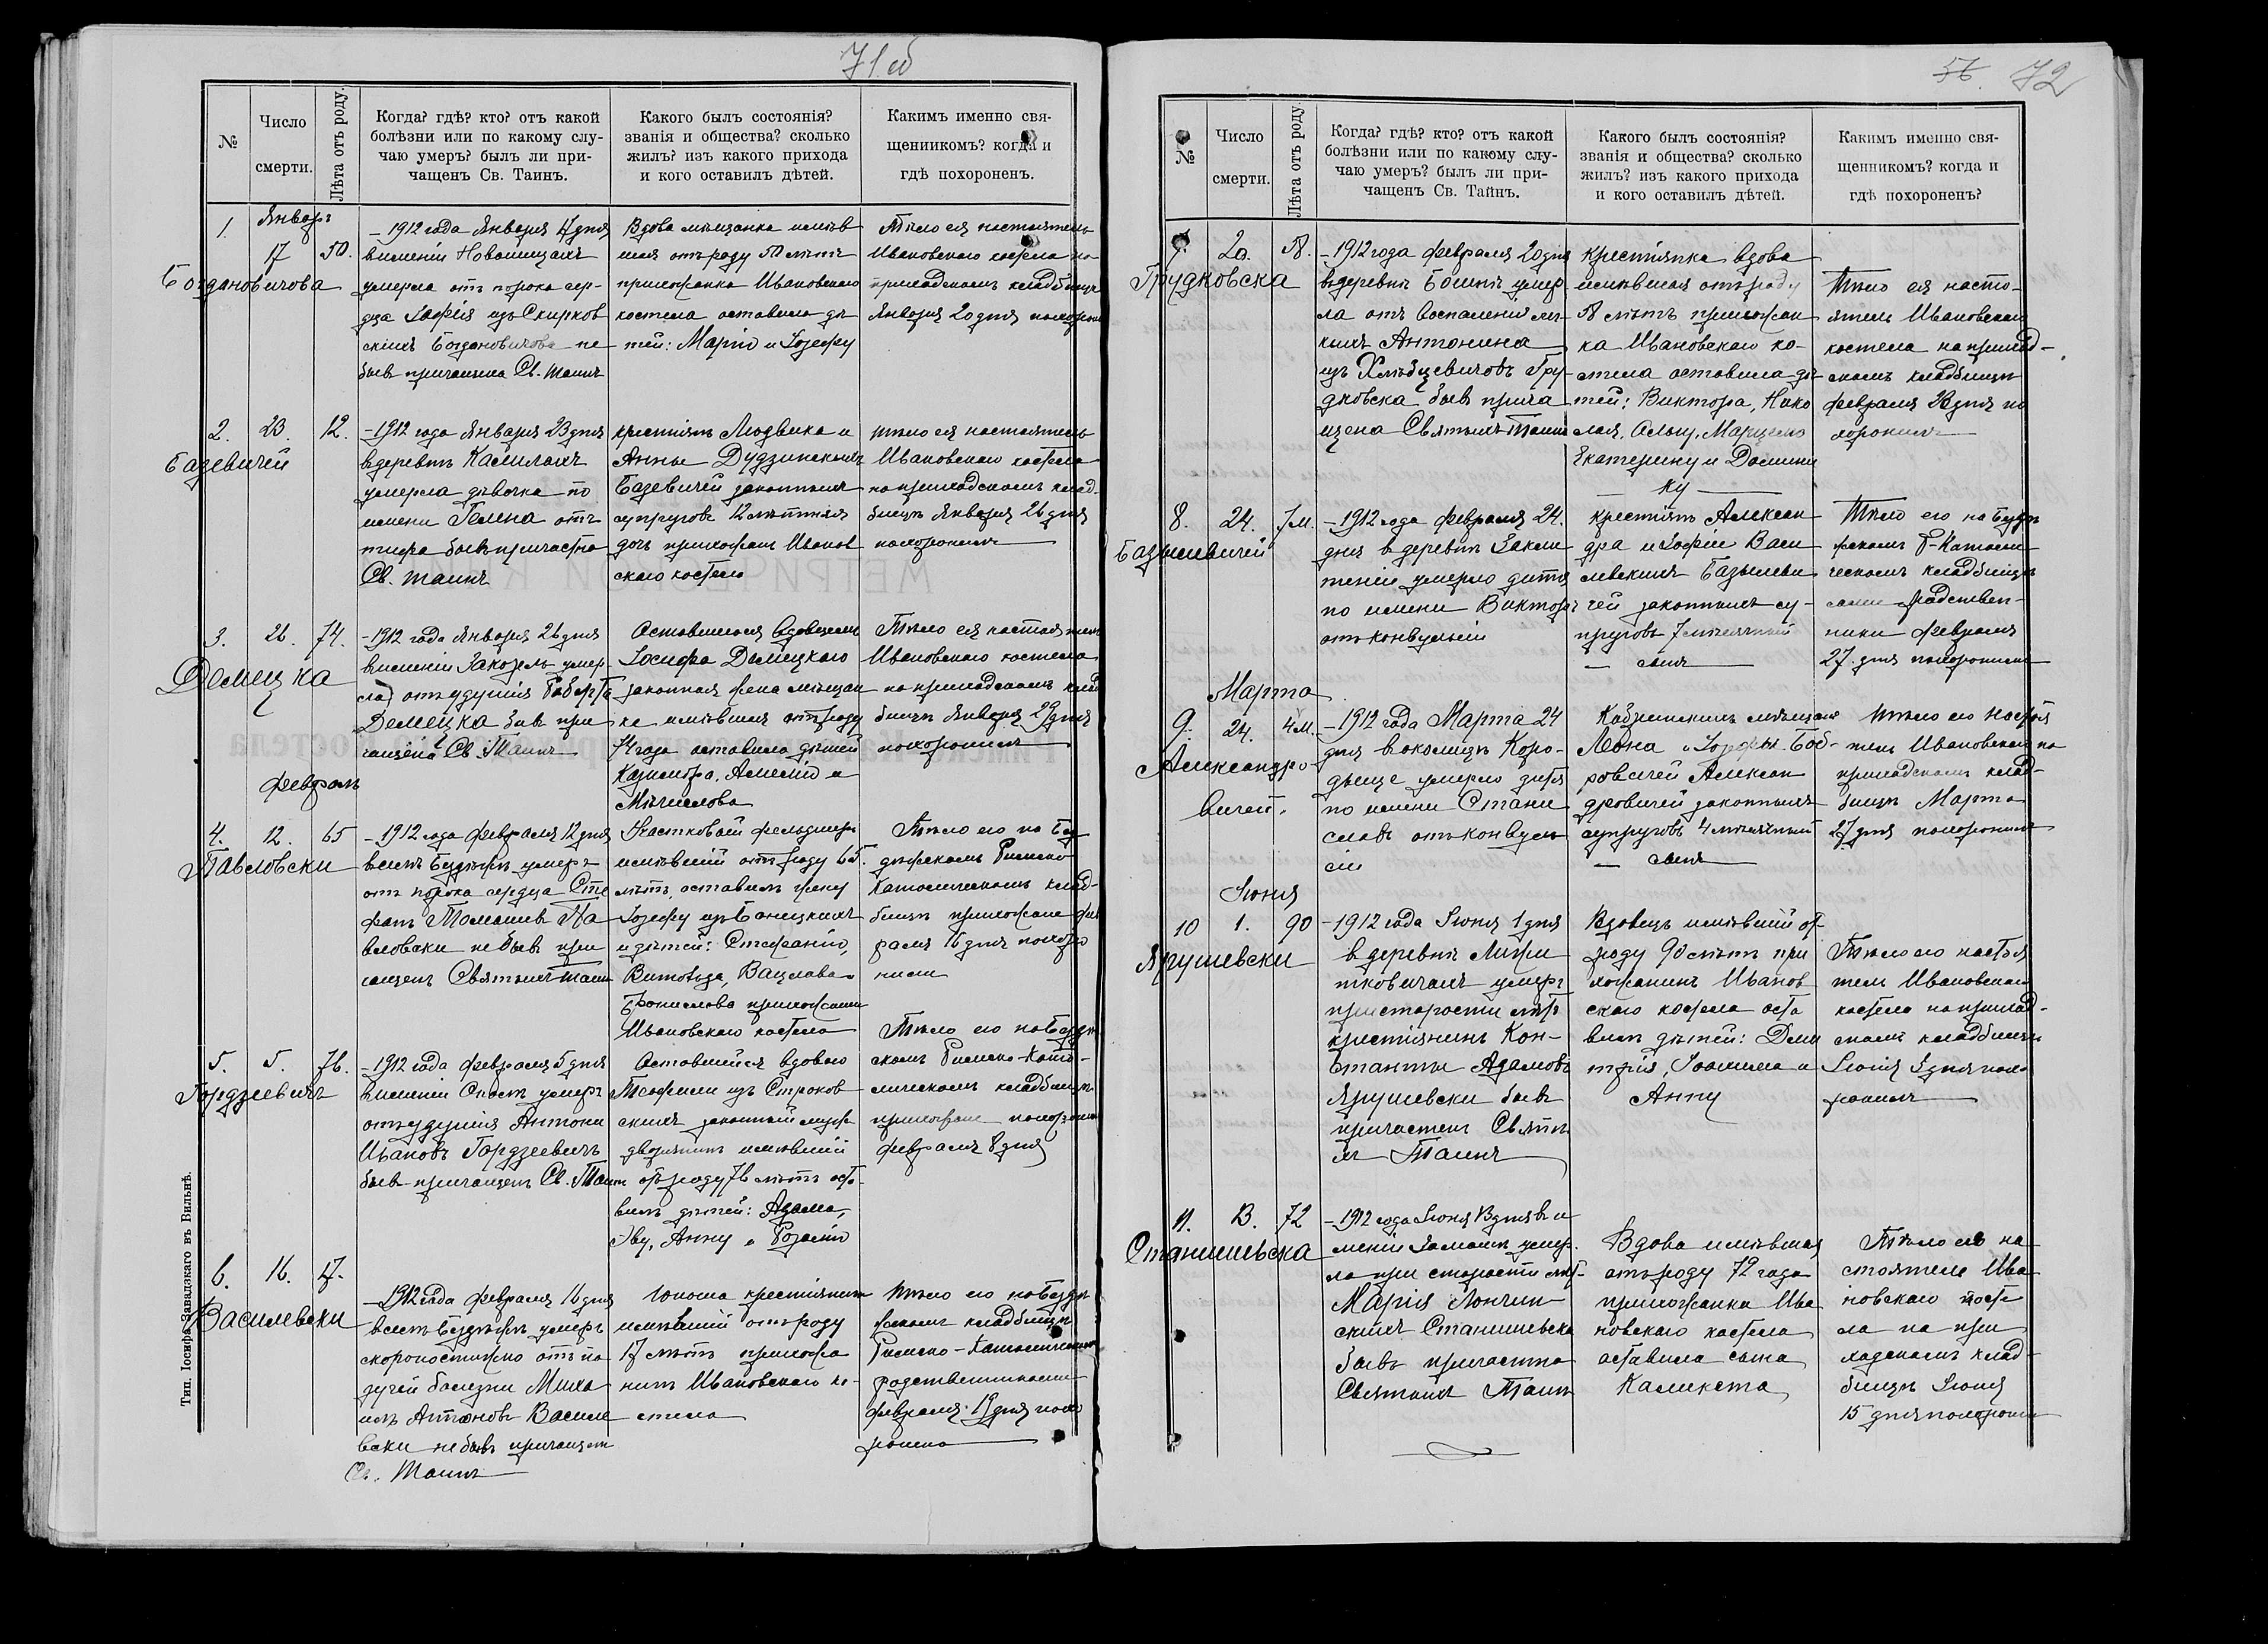 71 об
№
Число
смерти.
Лѣта отъ роду.
Когда? гдѣ? кто? отъ какой
болѣзни или по какому слу-
чаю умеръ? былъ ли при-
чащенъ Св. Таинъ.
Какого былъ состоянія?
званія и общества? сколько
жилъ? изъ какого прихода
и кого оставилъ дѣтей.
Какимъ именно свя-
щенникомъ? когда и
гдѣ похороненъ.
1.
Январь
17
50.
Богдановичова
– 1912 года Января 17 дня
въ имѣніи Новоищахъ
умерла отъ порока сер-
дца Зофія изъ Скирков
скихъ Богдановичова не
бывъ причащена Св. Таинъ
Вдова мѣщанка имѣв
шая отъ роду 50 лѣтъ
прихожанка Ивановскаго
костела оставила дѣ
тей: Марію и Іозефу
Тѣло ея настоятель
Ивановскаго костела на
приходскомъ кладбищѣ
Января 20 дня похорон
2.
23.
12.
Базевичей
– 1912 года Января 23 дня
въ деревнѣ Камилахъ
умерла дѣвочка по
имени Гелена отъ
тифа бывъ причастна
Св. Таинъ
крестьянъ Людвика и
Анны Дудзинскихъ
Базевичей законныхъ
супруговъ 12 лѣтняя
дочь прихожан Иванов
скаго костела
тѣло ея настоятель
Ивановскаго костела
на приходскомъ клад-
бищѣ Января 26 дня
похоронилъ
3.
26.
74.
Демецка
– 1912 года Января 26 дня
въ имѣніи Закозель умер-
ла отъ удушія
Демецка бывъ при
чащена Св. Таинъ
Оставшаяся вдовцемъ
Іосифа Демецкаго
законная жена мѣщан
ка имѣвшая отъ роду
74 года оставила дѣтей
Казимира, Амелію и
Мѣчислова
Тѣло ея настоятель
Ивановскаго костела
на приходскомъ клад
бищѣ Января 29 дня
похоронилъ
Февраль
4.
12.
65
Павловски
– 1912 года Февраля 12 дня
въ имѣ Бездѣжѣ умеръ
отъ порока сердца Сте
фанъ Томашевъ Па
вловски не бывъ при
чащенъ Святыхъ Таинъ
Участковый фельдшеръ
имѣвшій отъ роду 65.
лѣтъ, оставилъ жену
Іозефу изъ Баницкихъ
и дѣтей: Стефанію,
Витольда, Вацлава и
Бронислова прихожанин
Ивановскаго костела
Тѣло его на Без
дѣжскомъ Римско
Католическомъ клад-
бищѣ прихожане Фев
раля 15 дня похоро
нили
5.
5.
76.
Гордзеевичъ
– 1912 года Февраля 5 дня
въ имѣніи Споль умеръ
отъ удушія Антони
Ивановъ Гордзеевичъ
бывъ причащенъ Св. Таинъ
Оставшійся вдовою
Теофили изъ Строков
скихъ законный мужъ
дворянинъ имѣвшій
отъ роду 76 лѣтъ оста-
вилъ дѣтей: Адама,
Эву, Анну и Розалію
Тѣло его на Бездѣж
скомъ Римско-Като-
лическомъ кладбищѣ
прихожане похорон
февраля 8 дня
6.
16.
17.
Василевски
– 1912 года Февраля 16 дня
въ имѣ Бездѣжѣ умеръ
скоропостижно отъ па
дучей болезни Миха
илъ Антоновъ Василе
вски не бывъ причащенъ
Св. Таинъ
Юноша крестьянинъ
имѣвшій отъ роду
17 лѣтъ прихожа
нинъ Ивановскаго ко-
стела
Тѣло его на Бездѣ
жскомъ кладбищѣ
Римско-Католическомъ
родственниками
Февраля 19 дня похо
ронено
Тип. Іосифа Завадзкаго въ Вильнѣ.
56. 72
№
Число
смерти.
Лѣта отъ роду.
Когда? гдѣ? кто? отъ какой
болѣзни или по какому слу-
чаю умеръ? былъ ли при-
чащенъ Св. Тайнъ.
Какого былъ состоянія?
званія и общества? сколько
жилъ? изъ какого прихода
и кого оставилъ дѣтей.
Какимъ именно свя-
щенникомъ? когда и
гдѣ похороненъ?
7.
20.
58.
Грудковска
– 1912 года Февраля 20 дня
въ деревнѣ Бошнѣ умер-
ла отъ воспаленія лег
кихъ Антонина
изъ Хлѣбцевичовъ Гру-
дковска бывъ прича
щена Святыхъ Таинъ
Крестьянка вдова
имѣвшая отъ роду
58 лѣтъ прихожан
ка Ивановскаго ко-
стела оставила дѣ-
тей: Виктора, Нико
лая, Марцелю
Екатерину и Домини
ку
Тѣло ея насто-
ятель Ивановскаго
костела на приход-
скомъ кладбищѣ
Февраля 23 дня по
хоронилъ
8.
24.
7 м.
Базылевичей
– 1912 года Февраля 24.
дня въ деревнѣ
умерло дитя
по имени Викторъ
отъ конвульсіи
крестьянъ Алексан
дра и Зофіи Васи
левскихъ Базылеви
чей законныхъ су-
пруговъ 7 мѣсячный
– сынъ
Тѣло его на Бездѣ
жскомъ Р-Католи
ческомъ кладбищѣ
сами родствен-
ники Февраля
27 дня похоронили
Марта
9.
24.
4 м.
Александро-
вичей.
– 1912 года Марта 24
дня въ околицѣ Коро-
дыще умерло дитя
по имени Стани
славъ отъ конвуль
сіи
Кобринскихъ мѣщанъ
Леона и Іозефы Боб-
ровичей Алексан
дровичей законныхъ
супруговъ 4 мѣсячный
– сынъ
Тѣло его настоя
тель Ивановскаго на
приходскомъ клад-
бищѣ Марта
27 дня похоронилъ
Іюня
10
1.
90
Ярушевски
– 1912 года Іюня 1 дня
в деревнѣ Ляхи
тковичахъ умеръ
при старости лѣтъ
крестьянинъ Кон-
стантъ Адамовъ
Ярушевски бывъ
причастенъ Святы
хъ Таинъ
Вдовецъ имѣвшій от
роду 90 лѣтъ при
хожанинъ Иванов
скаго костела оста
вилъ дѣтей: Дми
трія, Іоахима и
Анну
Тѣло его настоя
тель Ивановскаго
костела на приход-
скомъ кладбищѣ
Іюня 3 дня похо
ронилъ
11.
13.
72
Станишевска
– 1912 года Іюня 13 дня въ и
мѣніи умер-
ла при старости лѣт-
Марія Лончин
скихъ Станишевска
бывъ причастна
Святыхъ Таинъ
Вдова имѣвшая
отъ роду 72 года
прихожанка Ива
новскаго костела
оставила сына
Каликста
Тѣло ея на
стоятель Ива
новскаго косте
ла на при
ходскомъ клад-
бищѣ Іюня
15 дня похоронилъ